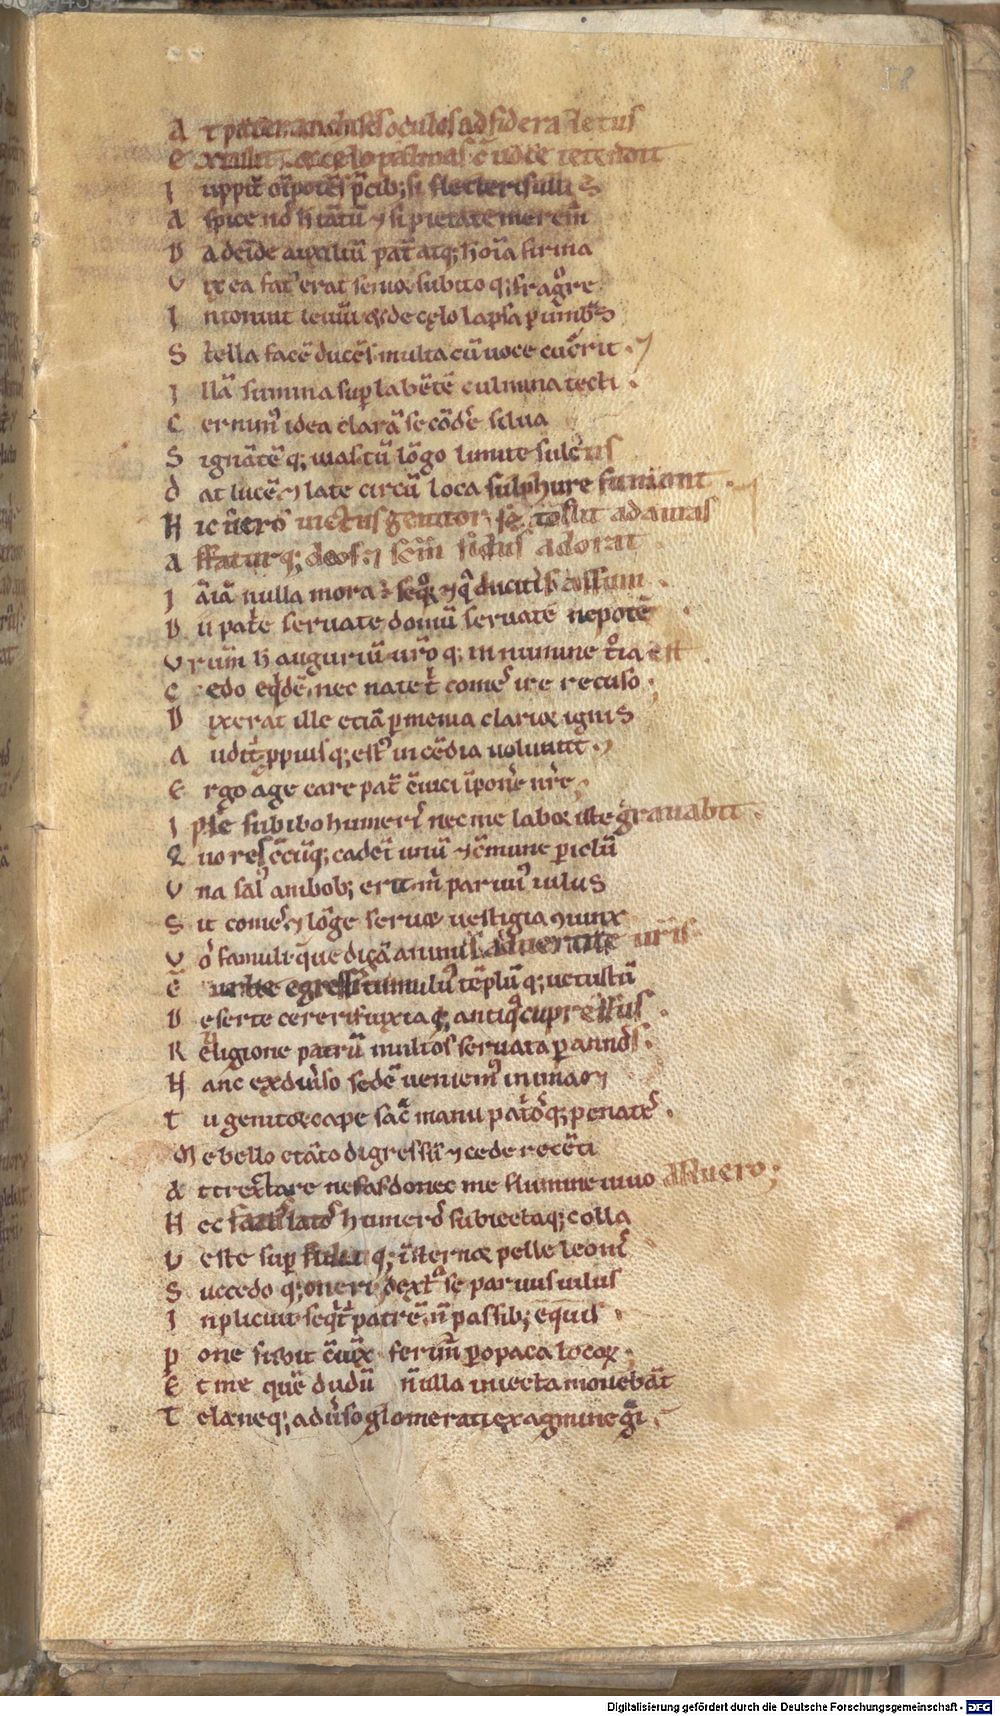 58
A t pater anchises oculos ad sidera letus
E xtulit & celo palmas cū uoce tetendit
I uppit̄ oīpotēs p̄cib; si flecteris ullis
A spice nos h tātū ⁊ si pietate merem̄
D a deīde auxiliū pat̄ atq; h oīa firma
V ix ea fat̾ erat senior subito q; fragore
I ntonuit leuū & de celo lapsa p umbras
S tella facē ducēs multa cū luce cucūrit .
I llā summa sup labētē culmina tecti .
C ernim̾ idea clarā se cōdere silua
S ignātē q; uias tū lōgo limite sulcus
D at lucē ⁊ late circū loca sulphure fumant .
H ic uero uictus genitor se tollit ad auras
A ffaturq; deos ⁊ sc̄m sidus adorat .
I ā iā nulla mora ē sequor ⁊ q̄ ducitis assum .
D ii patrie seruate domū seruate nepotē .
V rum̄ h auguriū ur̄o q; in numine troia est .
C edo eqdē nec nate t̄ comes ire recuso .
D ixerat ille etiā p menia clarior ignis
A udit̄ ppius q; est̾ incēdia uoluunt .
E rgo age care pat̄ ceruici īponere nr̄e .
I pse subibo humeris nec me labor iste grauabit .
Q uo res cūq; cadēt unū ⁊ cōmune piclū
V na sal̾ ambob; erit m̄ paruus iulus
S it comes ⁊ lōge seruet uestigia ⁊iunx
V os famuli que dicā animis aduertite uris
E urbe egressis tumulus tēplū q; uetustū
D eserte cereris iuxta q; antiq cupressus .
R eligione patrū multos seruata p annos .
H anc ex diuso sedē ueniem̾ in unam
T u genitor cape sac̄ manu patosq; penates .
M e bello e tāto digressū ⁊ cede recēti
A ttrectare nefas donec me flumine uiuo abluero ;
H ec fatus latos humeros subiectaq; colla
V este sup fului q; īsternor pelle leonis
S uccedo q; oneri dextre se paruus iulus
I nplicuit seqt̄ patrē n̄ passib; equis .
P one subit cōiux ferim̄ p opaca locor .
E t me quē dudū n̄ ulla iniecta mouebāt
T ela neq; aduso glomerati ex agmine gr̄ai .
Digitalisierung gefördert durch die Deutsche Forschungsgemeinschaft - DFG